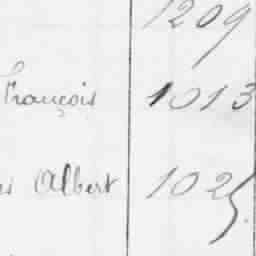 1209
François 1013
Albert 1025.